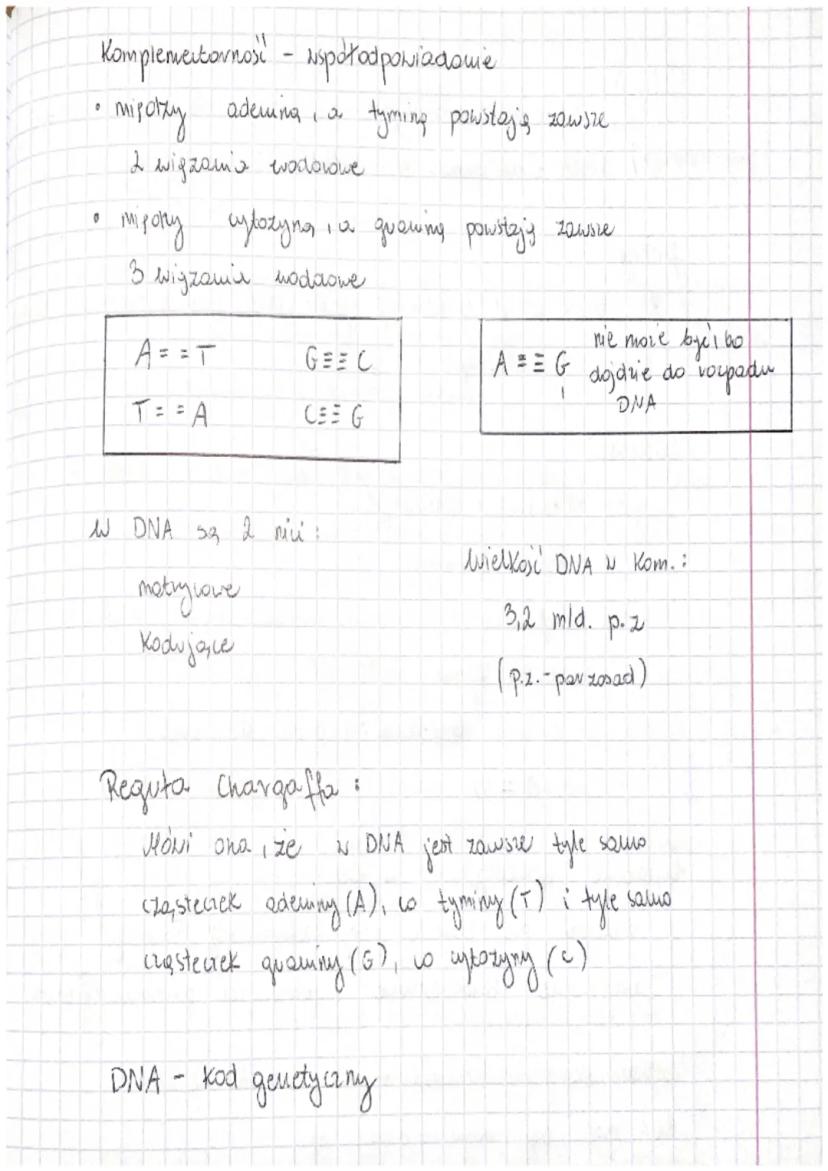 Komplementarność - współodpowiadanie
• między adeniną, a tyminą powstają zawsze
2 wiązania wodorowe
• między cytozyną, a guaniną powstają zawsze
3 wiązania wodorowe
A = = T G ≡ ≡ C
T = = A C ≡ ≡ G
A ≡ ≡ G nie może być, bo
dojdzie do rozpadu
DNA
W DNA są 2 nici:
matrycowe
kodujące
Wielkość DNA w kom.:
3,2 mld. p.z
(p.z. - par zasad)
Reguła Chargaffa:
Mówi ona, że w DNA jest zawsze tyle samo
cząsteczek adeniny (A), co tyminy (T) i tyle samo
cząsteczek guaniny (G), co cytozyny (C)
DNA - kod genetyczny